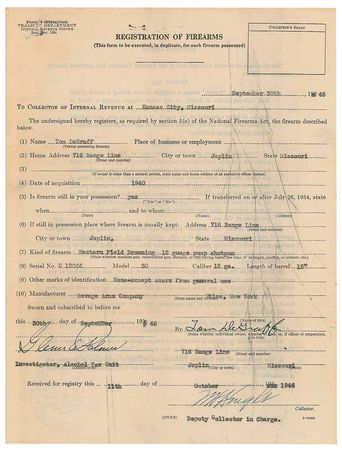 Form 1 (Firearms)
TREASURY DEPARTMENT
INTERNAL REVENUE SERVICE
COLLECTOR'S STAMP
REGISTRATION OF FIREARMS
(This form to be executed, in duplicate, for each firearm possessed)
September 30th , 1946
TO COLLECTOR OF INTERNAL REVENUE AT Kansas City, Missouri
The undersigned hereby registers, as required by section 5(a) of the National Firearms Act, the firearm described
below.
(1) Name Tom DeGraff Place of business or employment
(Person possessing firearm)
(2) Home Address 716 Range Line City or town Joplin State Missouri
(3)
(If owner is other than a natural person, state name and home address of an executive officer thereof)
(4) Date of acquisition 1940
(5) Is firearm still in your possession? yes If transferred on or after July 26, 1934, state
("Yes" or "No")
when and to whom
(Date) (Name) (Address)
(6) If still in possession where is firearm usually kept: Address 716 Range Line
City or town Joplin, State Missouri
(7) Kind of firearm Western Field Browning 12 guage pump shotgun
(8) Serial No. U Model 30 Caliber 12 ga. Length of barrel 15"
(9) Other marks of identification None-except scars from general use
(10) Manufacturer Savage Arms Company New York
(Name) (Address)
Sworn and subscribed to before me
this 30th day of September 1946
By Tom DeGraff
716 Range Line
Investigator, Alcohol Tax Unit Joplin Missouri
Received for registry this 11th day of October 1946
Collector.
(OVER) Deputy Collector in Charge.